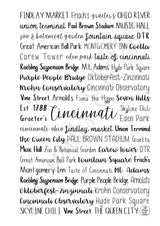 FINDLAY MARKET Frisch's OHIO RIVER
union terminal Paul Brown Stadium MUSIC HALL
zoo & botanical garden fountain square OTR
Great American Ball Park MONTGOMERY INN Eden
Carew Tower taste of cincinnati
Roebling Suspension Bridge Mt. Adams Hyde Park Square
Purple People Bridge OktoberFest-Zinzinnati
Krohn Conservatory Cincinnati Observatory
Vine Street Arnold's Times Frisch's
Est 1788 Skyline Chili
Graeter's Cincinnati Eden Park
cincinnati findlay market Union Terminal
Ohio River PAUL BROWN STADIUM Graeter's
Music Hall Zoo & Botanical Garden Fountain Square
Great American Ball Park Fountain Square Frisch's
Montgomery Inn Taste of Cincinnati Mt. Adams
Roebling Suspension Bridge Purple People Bridge Arnold's
Oktoberfest-Zinzinnati Krohn Conservatory
Cincinnati Observatory Hyde Park Square
SKYLINE CHILI Vine Street THE QUEEN CITY